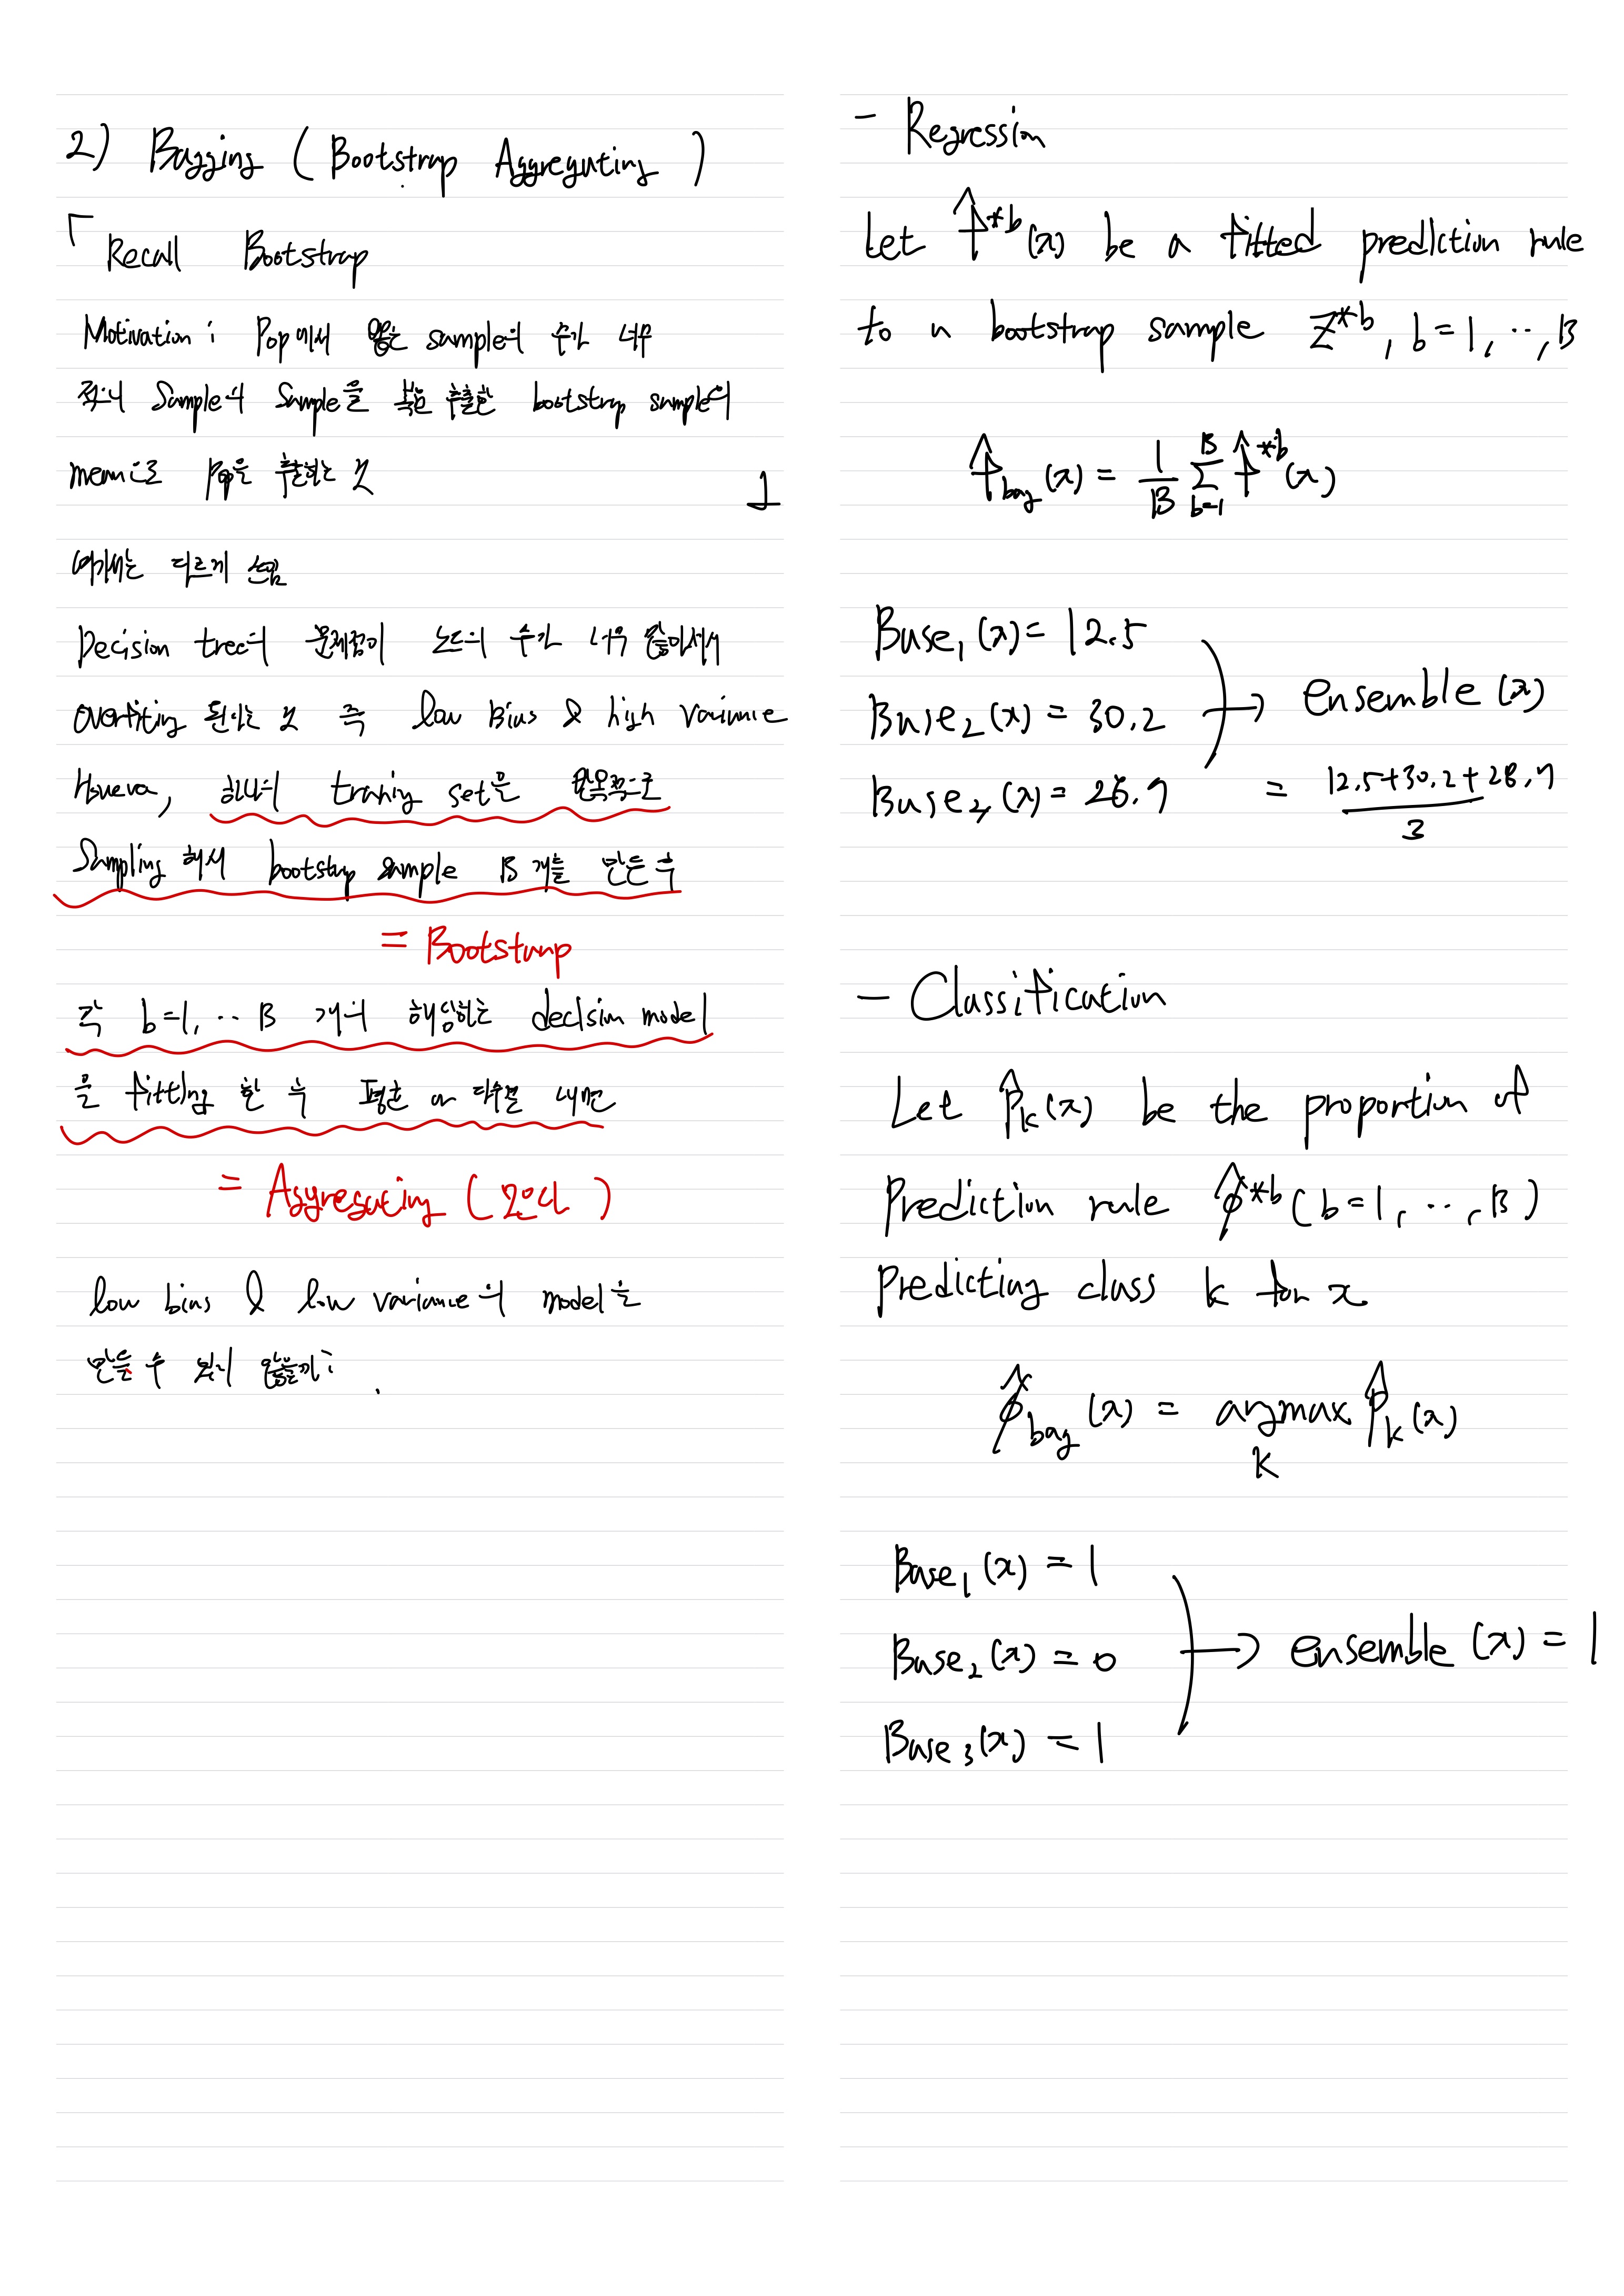 2) Bagging ( Bootstrap Aggregating )
「 Recall Bootstrap
Motivation : Pop에서 뽑은 sample의 수가 너무
적으니 Sample의 Sample을 복원 추출한 bootstrap sample의
mean으로 Pop을 추출하는 것
」
여기서는 다르게 쓰임
Decision tree의 문제점이 노드의 수가 너무 많아져서
overfitting 된다는 것 즉 low Bias & high Variance
However, 하나의 training set을 반복적으로
Sampling 해서 bootstrap sample B 개를 만든 후
= Bootstrap
각 b=1, ‥ B 개에 해당하는 decision model
을 fitting 한 후 평균 or 다수결 내면
= Aggregating (요약)
low bias & low variance의 model을
만들 수 있지 않을까?
- Regression
Let f̂*ᵇ(x) be a fitted prediction rule
to a bootstrap sample Z*ᵇ, b=1, ‥, B
f̂bag(x) = 1/B Σ_{b=1}^{B} f̂*ᵇ(x)
Base₁(x) = 12.5
Base₂(x) = 30.2 → ensemble(x)
(x) = 28.7 = (12.5+30.2+28.7)/3
- Classification
Let p̂k(x) be the proportion of
Prediction rule φ̂*ᵇ (b=1, …, B)
Predicting class k for x
φ̂bag(x) = argmax_k p̂k(x)
Base₁(x) = 1
Base₂(x) = 0 → ensemble(x) = 1
Base₃(x) = 1